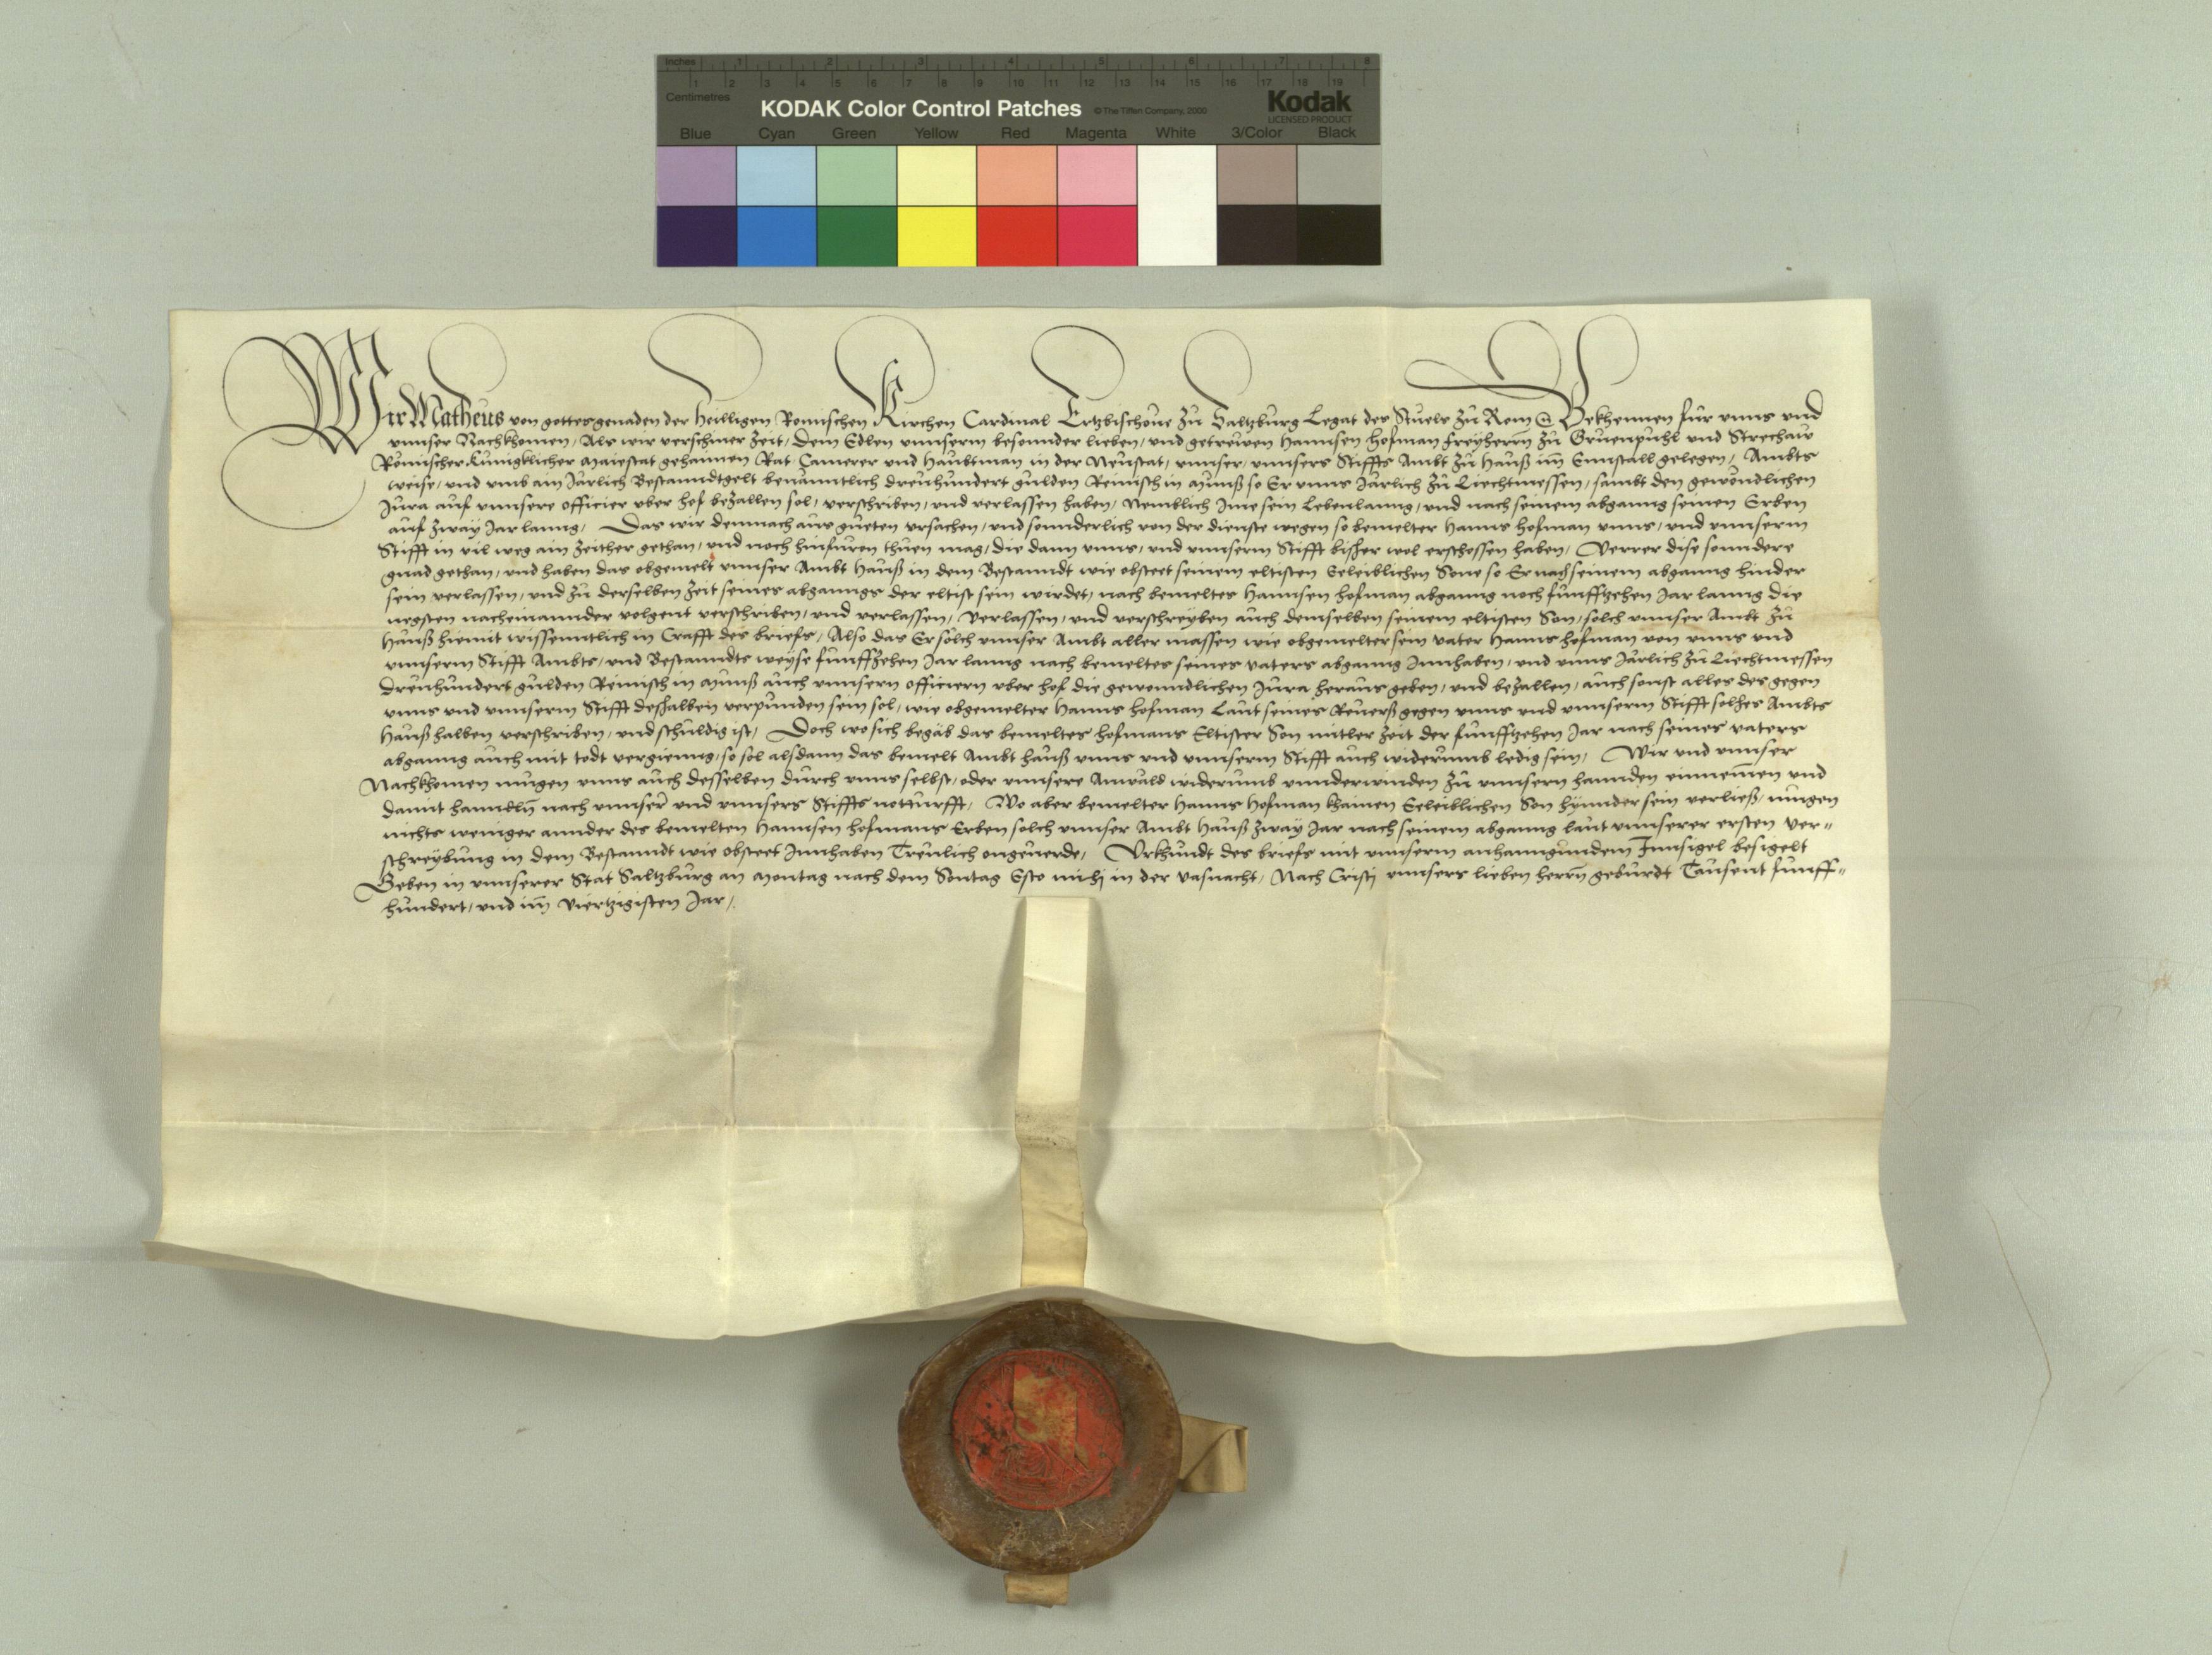 Inches 1 2 3 4 5 6 7 8
1 2 3 4 5 6 7 8 9 10 11 12 13 14 15 16 17 18 19
Centimetres
KODAK Color Control Patches © The Tiffen Company, 2000 Kodak
LICENSED PRODUCT
Blue Cyan Green Yellow Red Magenta White 3/Color Black
Wir Matheus von gottes genaden der heilligen Romischen Kirchen Cardinal Ertzbischoue zu Saltzburg Legat des Stuels zu Rom Bekhennen für vnns vnd
vnnser Nachkhomen, Als wir verschiner zeit, dem Edlen vnnserm besonnder lieben, vnd getrewen Hannsen Hofman Freyherrn zu Gruenpuhl vnd Strechaw
Römischer Kunigklicher Maiestat gehaimen Rat Camerer vnd Haubtman in der Neustat, vnnser, vnnsers Stiffts Ambt zu Hauß im Ennstall gelegen, Ambts
weise, vnd vmb ain Järlich Bestanndtgelt benanntlich dreuhundert gulden Reinisch in Munß so Er vnns Järlich zu Liechtmessen, sambt den gewondlichen
Jura auf vnnsere officier vber hof bezallen sol, verschriben, vnd verlassen haben, Nemblich Ime sein Lebenlanng, vnd nach seinem abganng seinen Erben
auf zway Jar lanng, Das wir demnach aus gueten vrsachen, vnd sonnderlich von der dienste wegen so bemelter Hanns Hofman vnns, vnd vnnserm
Stifft in vil weg ain zeither gethan, vnd noch hinfuren thuen mag, die dann vnns, vnd vnnserm Stifft bisher wol erschossen haben, Verrer dise sonndere
gnad gethan, vnd haben das obgemelt vnnser Ambt Hauß in dem Bestanndt wie obsteet seinem eltisten Eeleiblichen Sone so Er nach seinem abganng hinder
sein verlassen, vnd zu derselben zeit seines abganngs der eltist sein wirdet, nach bemeltes Hannsen Hofman abganng noch funffzehen Jar lanng die
negsten nacheinannder volgent verschriben, vnd verlassen, Verlassen, vnd verschreyben auch demselben seinem eltisten Son, solch vnnser Ambt zu
Hauß hiemit wissenntlich in Crafft des briefs, Also das Er solch vnnser Ambt aller massen wie obgemelter sein vater Hanns Hofman von vnns vnd
vnnserm Stifft Ambts, vnd Bestanndts weyse funffzehen Jar lanng nach bemeltes seines vaters abganng Innhaben, vnd vnns Järlich zu Liechtmessen
dreuhundert gulden Reinisch in Munß auch vnnsern officiern vber hof die gewonndlichen Jura heraus geben, vnd bezallen, auch sonst alles des gegen
vnns vnd vnnserm Stifft deshalben verpunden sein sol, wie obgemelter Hanns Hofman Laut seines Reuerß gegen vnns vnd vnnserm Stifft solhes Ambts
Hauß halben verschriben, vnd schuldig ist, Doch wo sich begäb das bemeltes Hofmans Eltister Son mitler zeit der funffzehen Jar nach seines vaters
abganng auch mit todt vergienng, so sol alsdann das bemelt Ambt Hauß vnns vnd vnnserm Stifft auch widerumb ledig sein, Wir vnd vnnser
Nachkhomen mugen vnns auch desselben durch vnns selbst, oder vnnsere Anwäld widerumb vnnderwinden zu vnnsern hannden einnemen vnd
damit hanndln nach vnnser vnd vnnsers Stiffts notturfft, Wo aber bemelter Hanns Hofman khainen Eeleiblichen Son hynnder sein verließ, mugen
nichts weniger annder des bemelten Hannsen Hofmans Erben solch vnnser Ambt Hauß zway Jar nach seinem abganng laut vnnserer ersten Ver-
schreybung in dem Bestanndt wie obsteet Innhaben Treulich ongeuerde, Vrkhundt des briefs mit vnnserm anhanngundem Innsigel besigelt
Geben in vnnserer Stat Saltzburg an Montag nach dem Sontag Esto michj in der vasnacht, Nach Cristj vnnsers lieben herrn geburdt Tausent funff-
hundert, vnd im viertzigisten Jar,